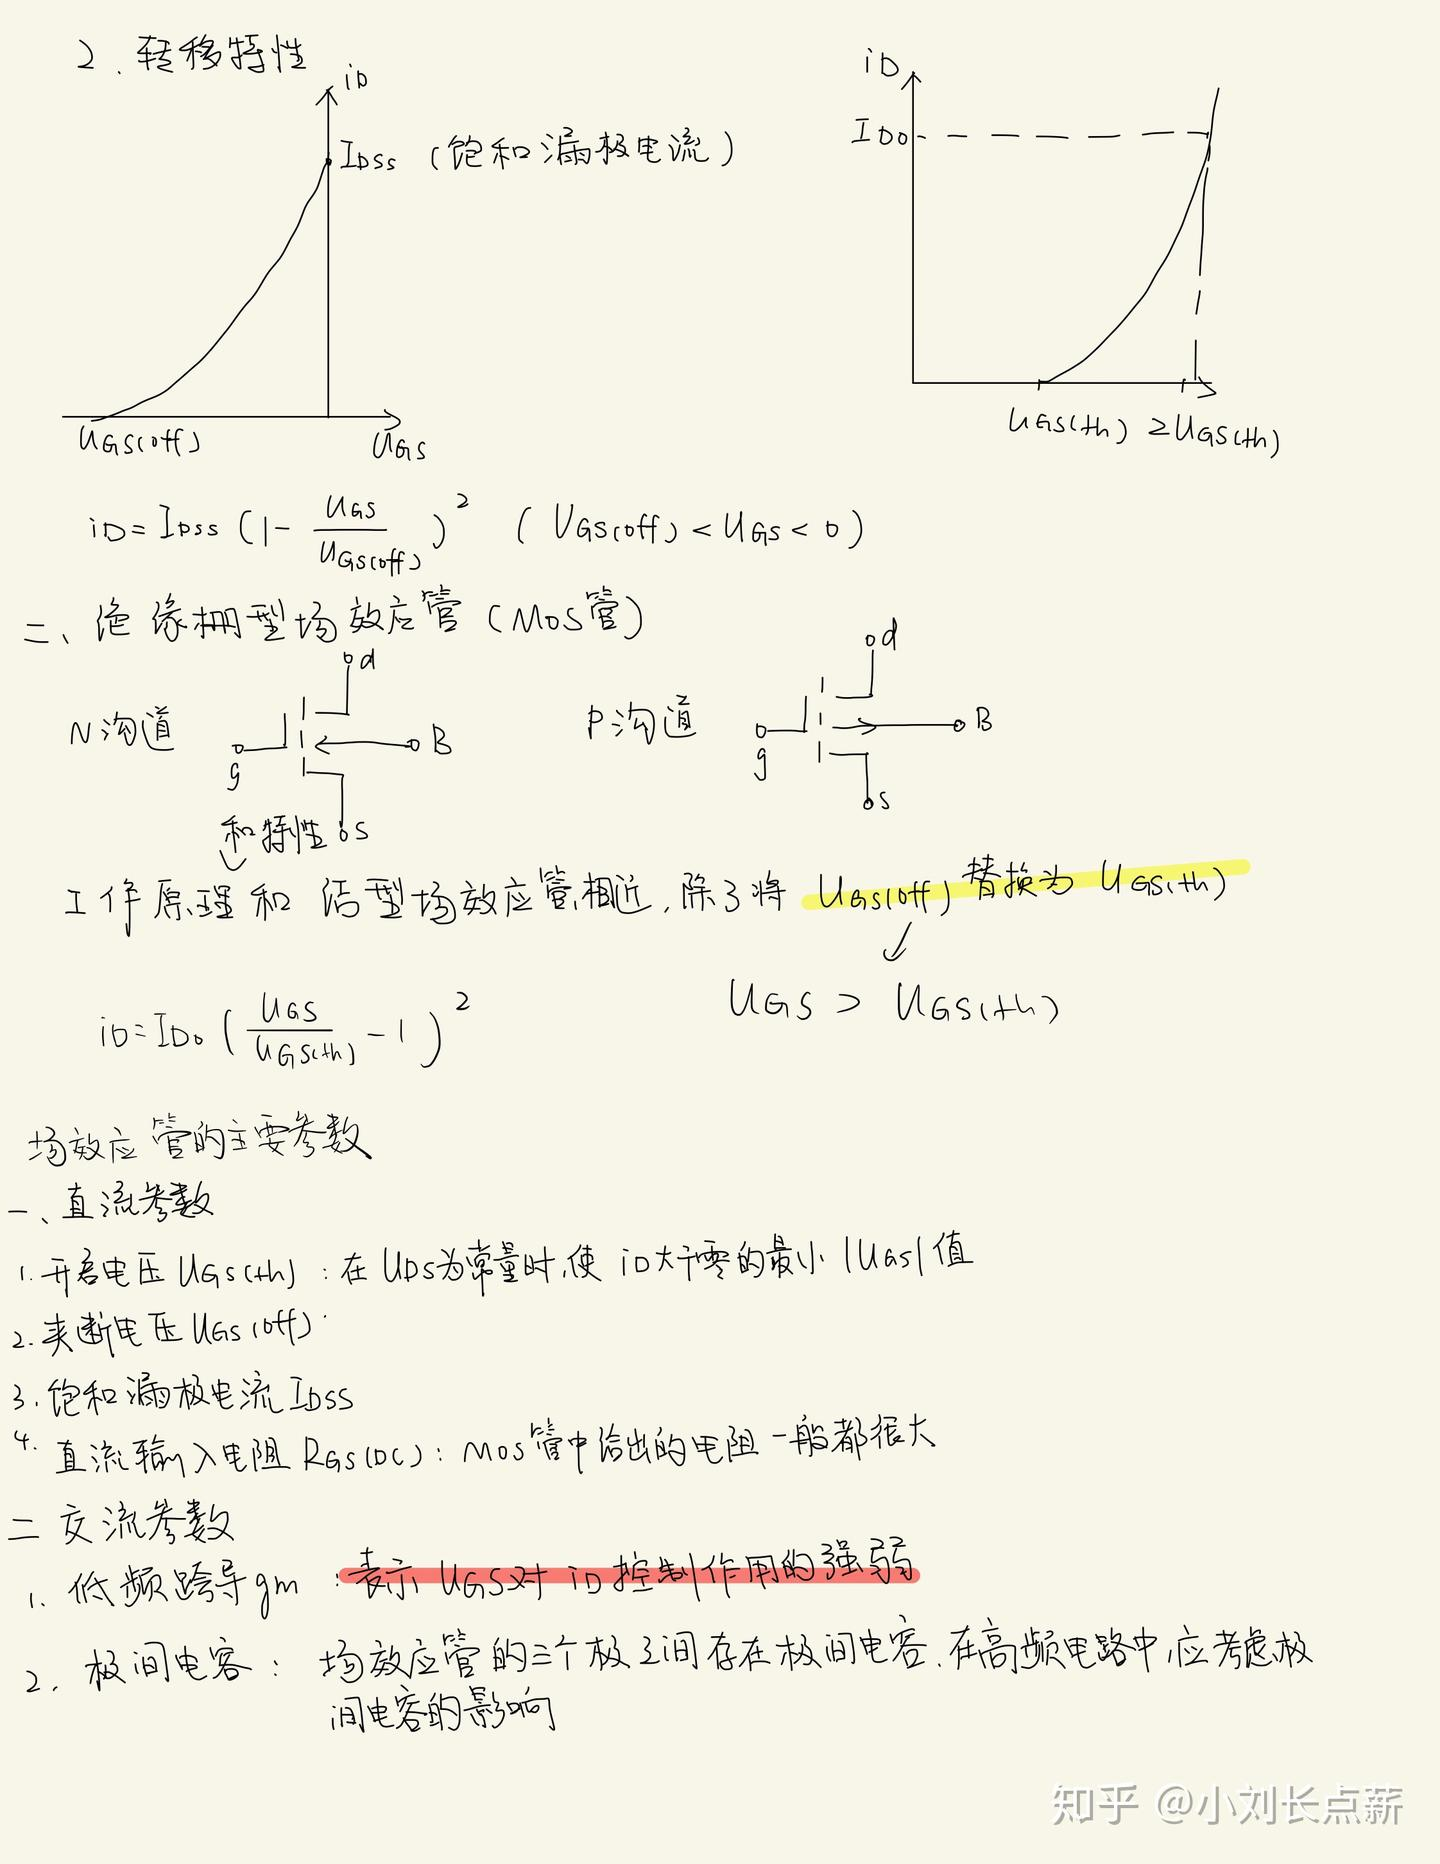 2. 转移特性
iD
IDSS (饱和漏极电流)
UGS(off)
UGS
iD
IDO
UGS(th) 2UGS(th)
iD=IDSS(1-UGS/UGS(off))² (UGS(off)<UGS<0)
二、绝缘栅型场效应管(MOS管)
N沟道
d
g
B
s
P沟道
d
g
B
s
和特性
工作原理和结型场效应管相近,除了将UGS(off)替换为UGS(th)
UGS > UGS(th)
iD=IDO(UGS/UGS(th)-1)²
场效应管的主要参数
一、直流参数
1. 开启电压UGS(th):在UDS为常量时,使iD大于零的最小|UGS|值
2. 夹断电压UGS(off)
3. 饱和漏极电流IDSS
4. 直流输入电阻RGS(DC):MOS管中给出的电阻一般都很大
二 交流参数
1. 低频跨导gm:表示UGS对iD控制作用的强弱
2. 极间电容:场效应管的三个极之间存在极间电容.在高频电路中,应考虑极
间电容的影响
知乎 @小刘长点薪